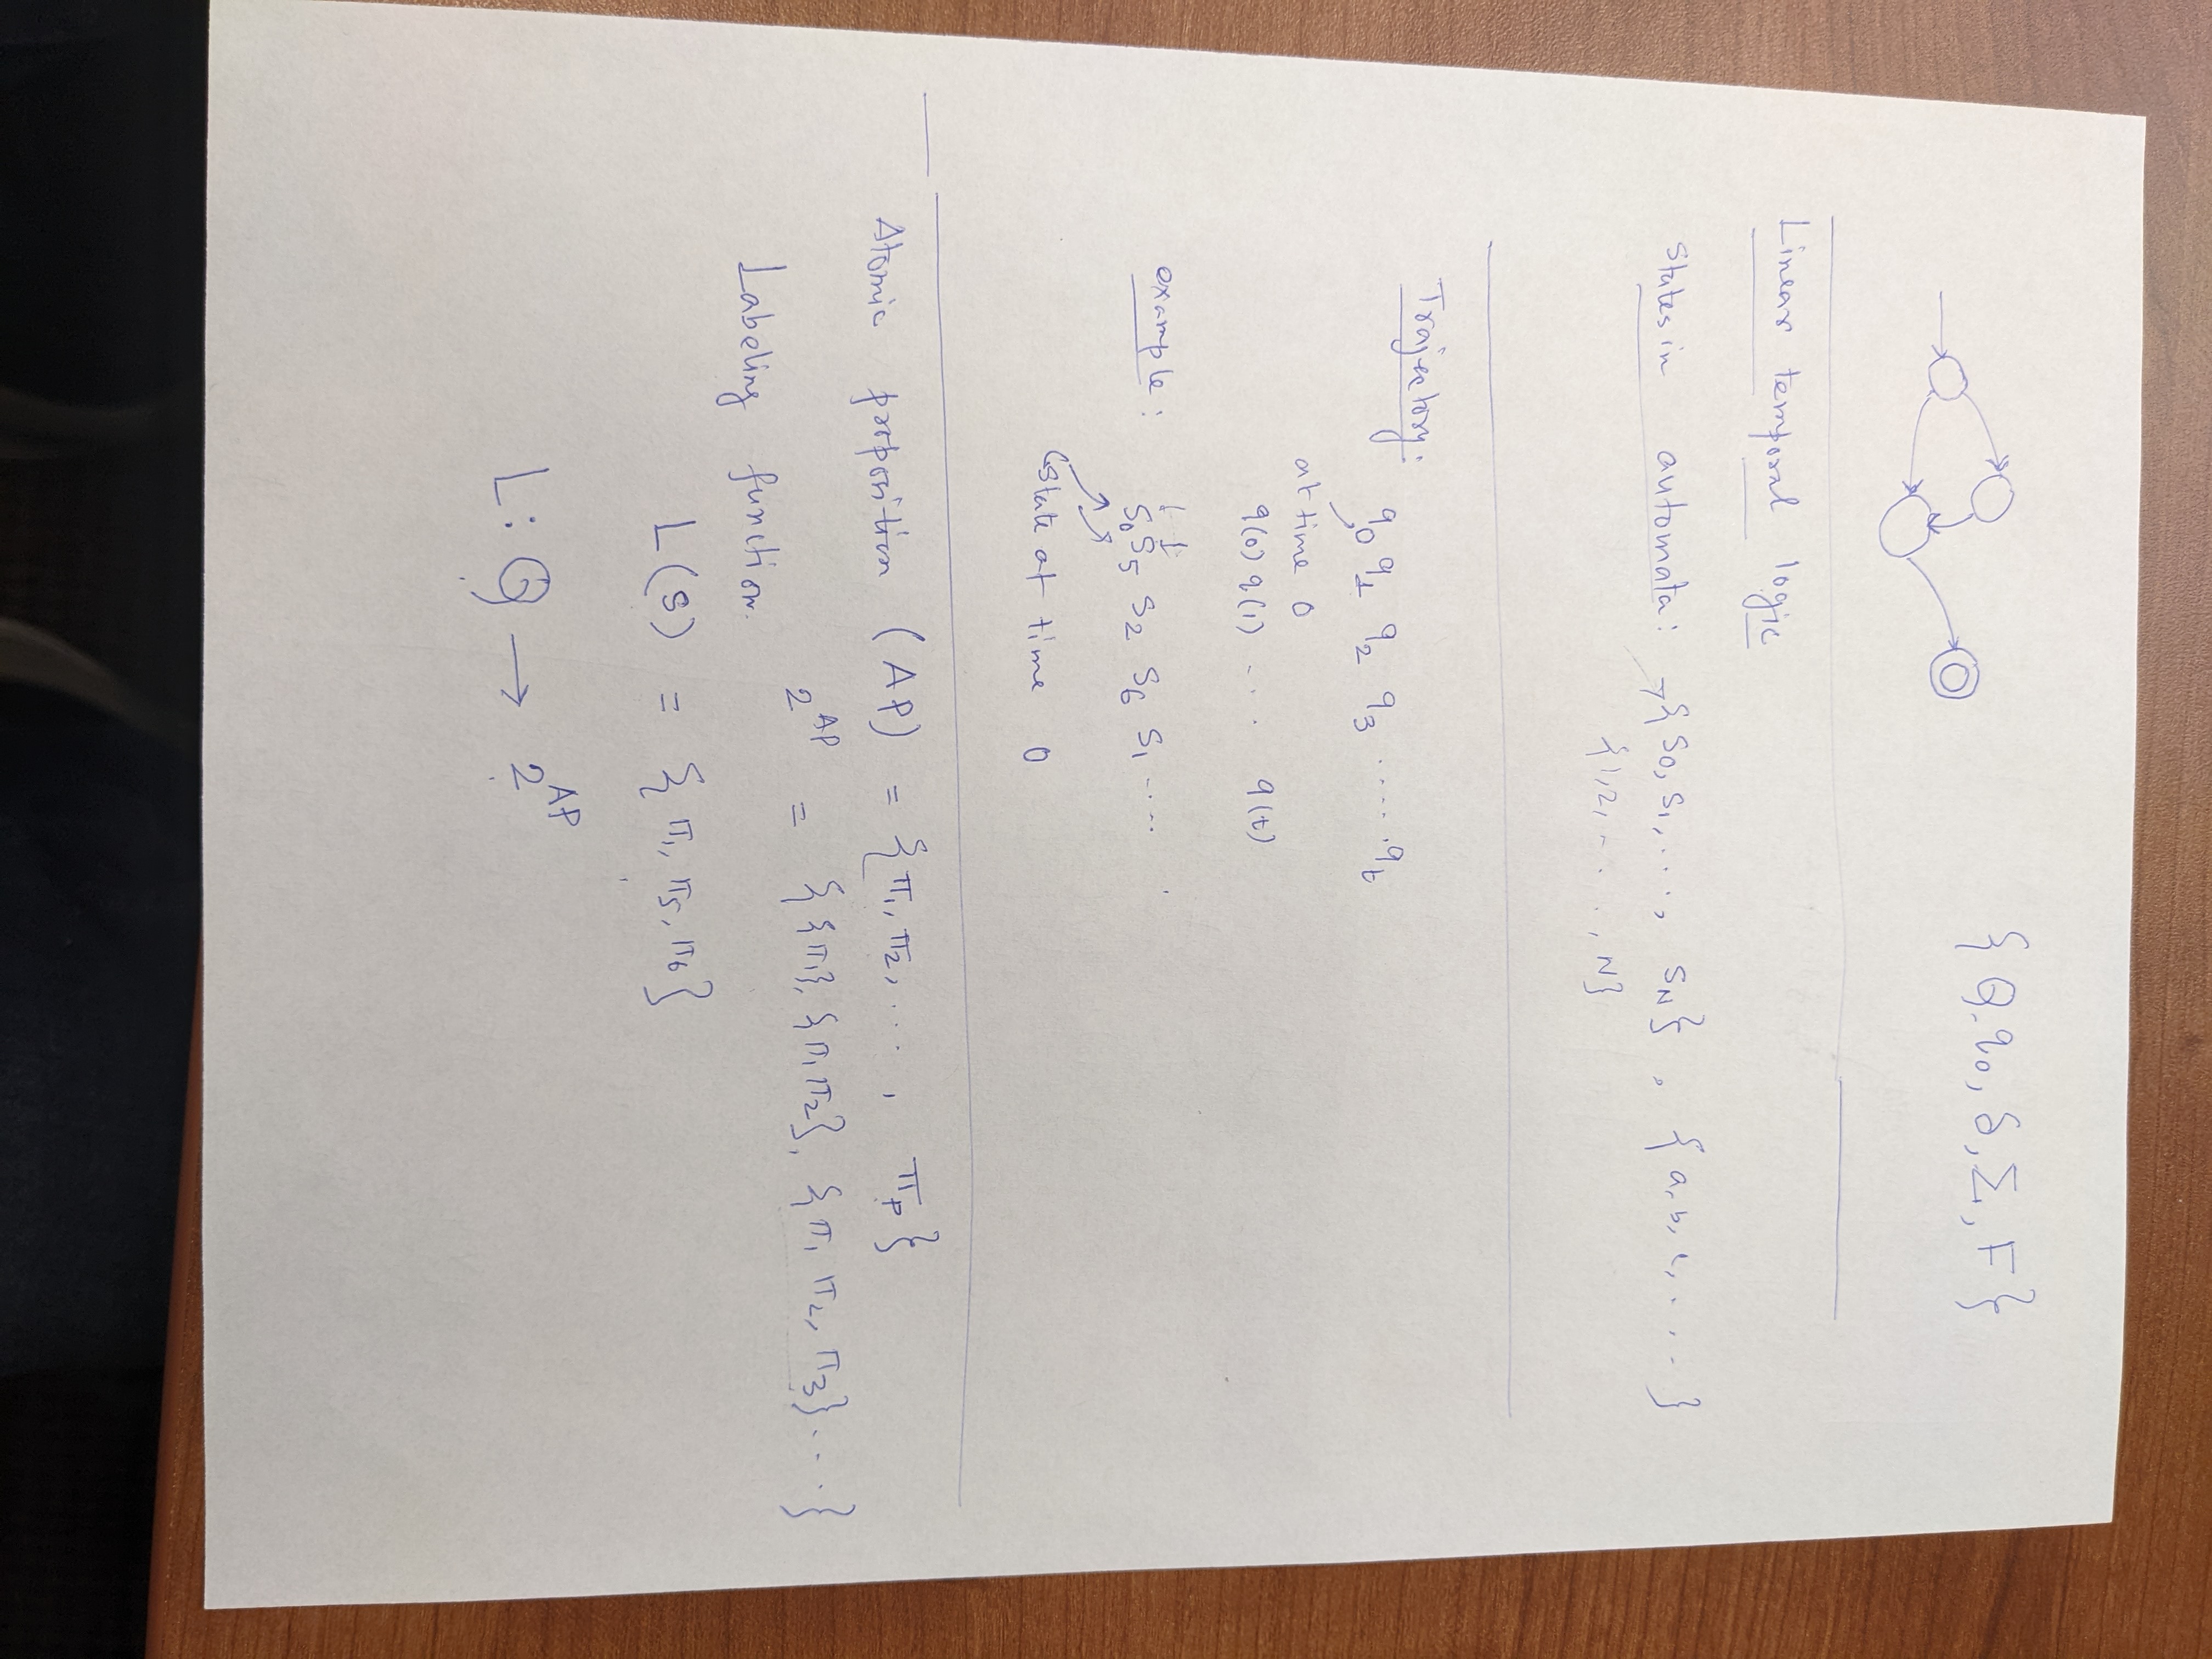 {Q, q₀, δ, Σ, F}
Linear temporal logic
States in automata: → {S₀, S₁, ...., S_N} , {a, b, c, ....}
{1, 2, ...., N}
Trajectory: q₀ q₁ q₂ q₃ ..... q_t
at time 0
q(0) q(1) ... q(t)
example: S₀ S₅ S₂ S₆ S₁ ....
state at time 0
Atomic proposition (AP) = {π₁, π₂, ...., π_p}
2^AP = {{π₁}, {π₁ π₂}, {π₁ π₂, π₃} ....}
Labeling function.
L(s) = {π₁, π₅, π₆}
L: Q → 2^AP